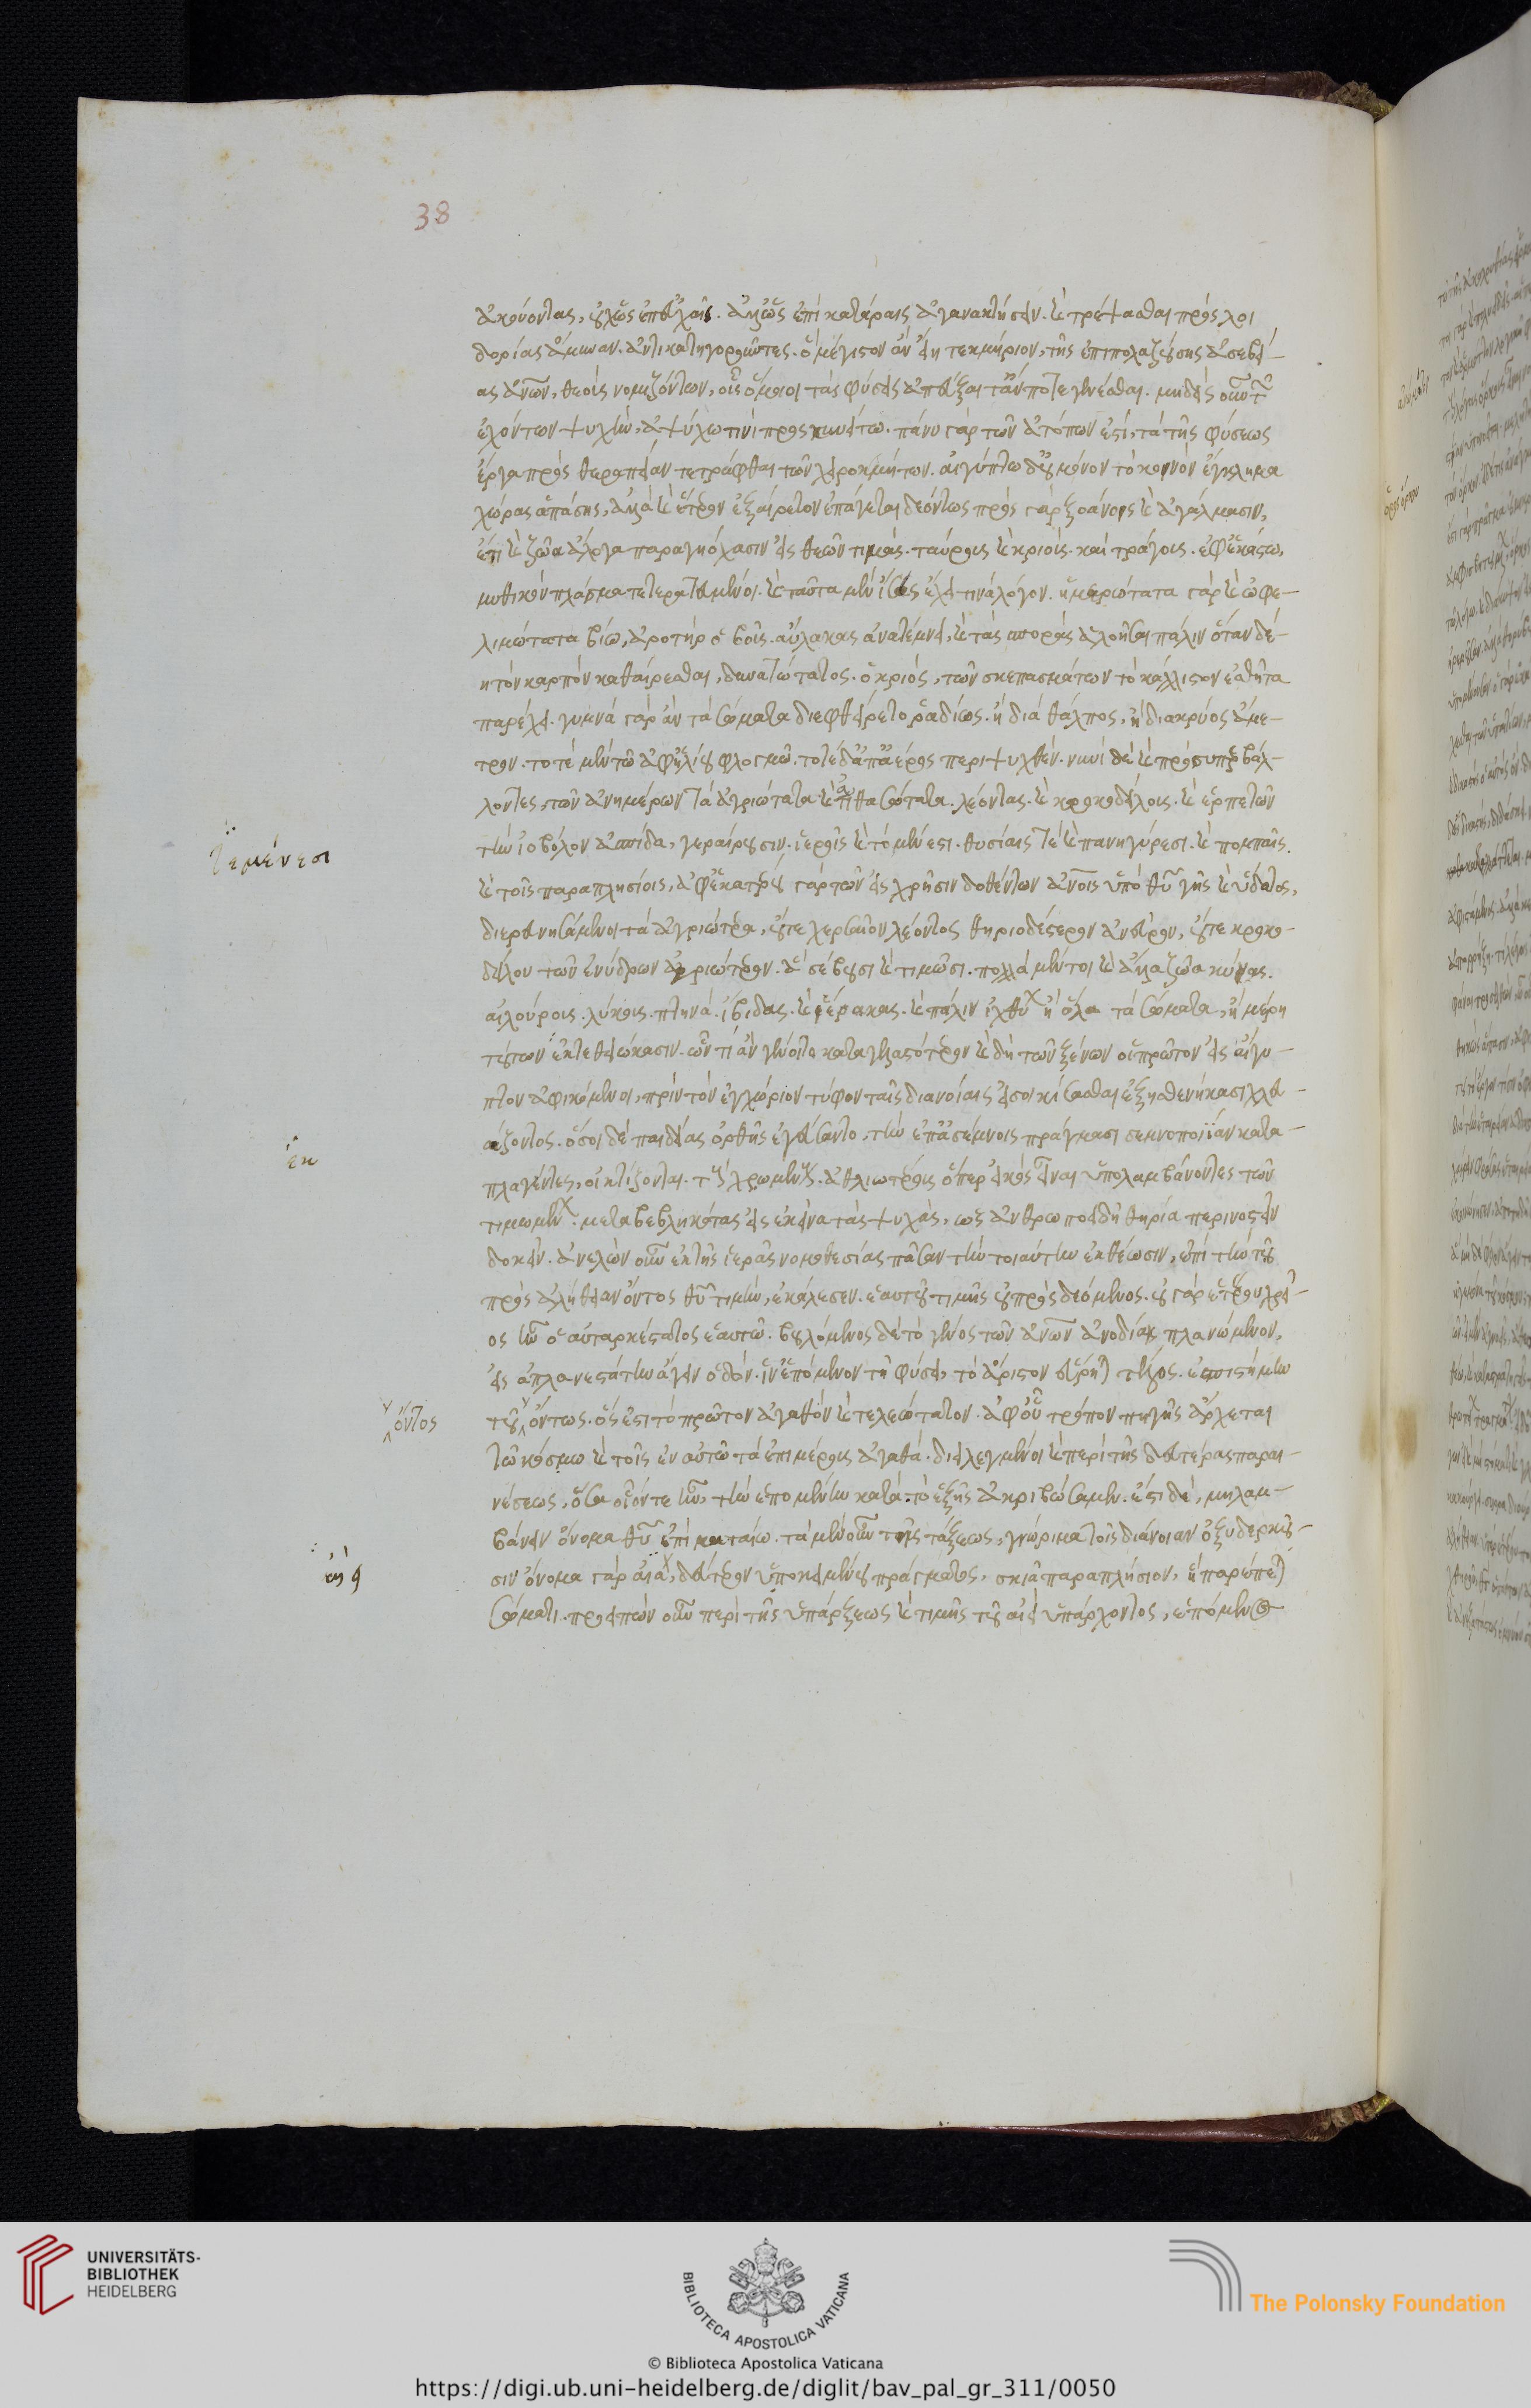 38
ἀκούοντας, οὐχ ὡς ἐπ' εὐχαῖς. ἀλλ' ὡς ἐπὶ κατάραις ἀγανακτήσειν. καὶ τρέψασθαι πρὸς λοι
δορίας ἄμυναν. ἀντικατηγοροῦντες. ὃ μέγιστον ἂν εἴη τεκμήριον, τῆς ἐπιπολαζούσης ἀσεβεί-
ας ἀνων, θεοὺς νομιζόντων, οἷς ὅμοιοι τὰς φύσεις ἀπεύξαιντ' ἄν ποτε γενέσθαι. μηδεὶς οὖν τῶν
ἐχόντων ψυχὴν, ἀψύχω τινὶ προσκυνείτω. πάνυ γὰρ τῶν ἀτόπων ἐστί, τὰ τῆς φύσεως
ἔργα πρὸς θεραπείαν τετράφθαι τῶν χειροκμήτων. αἰγύπτω δ' οὐ μόνον τὸ κοινὸν ἔγκλημα
χώρας ἁπάσης, ἀλλὰ καὶ ἕτερον ἐξαίρετον ἐπάγεται δεόντως πρὸς γὰρ ξοάνοις καὶ ἀγάλμασιν,
ἔτι καὶ ζῶα ἄλογα παραγηόχασιν εἰς θεῶν τιμὰς. ταύρους καὶ κριοὺς. καὶ τράγους. ἐφ' ἑκάστω,
μυθικὸν πλάσμα τετερατευμένοι. καὶ ταῦτα μὲν ἴσως ἔχει τινὰ λόγον. ἡμερώτατα γὰρ καὶ ὠφε-
λιμώτατα βίω, ἀροτὴρ ὁ βοῦς. αὔλακας ἀνατέμνει, καὶ τὰς σπορὰς ἀλοῆσαι πάλιν ὅταν δέ-
η τὸν καρπὸν καθαίρεσθαι, δυνατώτατος. ὁ κριὸς, τῶν σκεπασμάτων τὸ κάλλιστον ἐσθῆτα
παρέχει. γυμνὰ γὰρ ἂν τὰ σώματα διεφθείρετο ῥαδίως. ἢ διὰ θάλπος, ἢ διὰ κρύος ἄμε-
τρον. τοτὲ μὲν τῶ ἀφ' ἡλίου φλογμῶ. τοτὲ δ' ἀπ' ἀέρος περιψυχθέν. νυνὶ δὲ καὶ προσυπερβάλ-
λοντες, τῶν ἀνημέρων τὰ ἀγριώτατα καὶ ἀτιθασώτατα. λέοντας. καὶ κροκοδείλους. καὶ ἑρπετῶν
τὴν ἰοβόλον ἀσπίδα, γεραίρουσιν. ἱεροῖς καὶ τόμενεσι. θυσίαις τε καὶ πανηγύρεσι. καὶ πομπαῖς.
τεμένεσι
καὶ τοῖς παραπλησίοις, ἀφ' ἑκατέρου γὰρ τῶν εἰς χρῆσιν δοθέντων ἀνοις ὑπὸ θυ γῆς καὶ ὕδατος,
διερευνησάμενοι τὰ ἀγριώτερα, οὔτε χερσαῖον λέοντος θηριοδέστερον ἀνεῦρον, οὔτε κροκο-
δείλου τῶν ἐνύδρων ἀγριώτερον. ἃ σέβουσι καὶ τιμῶσι. πολλὰ μέντοι καὶ ἄλλα ζῶα κύνας.
αἰλούρους. λύκους. πτηνὰ. ἴβιδας. καὶ ἱέρακας. καὶ πάλιν ἰχθύων ἢ ὅλα τὰ σώματα, ἢ μέρη
τούτων ἐκτεθειώκασιν. ὧν τί ἂν γένοιτο καταγελαστότερον καὶ δὴ τῶν ξένων οἱ πρῶτον εἰς αἴγυ-
πτον ἀφικόμενοι, πρὶν τὸν ἐγχώριον τύφον ταῖς διανοίαις εἰσοικίσασθαι ἐξησθενήκασι χλευ-
άζοντος. ὅσοι δὲ παιδείας ὀρθῆς ἐγεύσαντο, τὴν ἐπ' ἀσέμνοις πράγμασι σεμνοποιΐαν κατα-
ἐκ
πλαγέντες, οἰκτίζονται. τοὺς χρωμένους. ἀθλιωτέρους ὅπερ εἰκὸς εἶναι ὑπολαμβάνοντες τῶν
τιμωμένων. μεταβεβληκότας εἰς ἐκεῖνα τὰς ψυχὰς, ὡς ἀνθρωποειδῆ θηρία περινοστεῖν
δοκεῖν. ἀνελὼν οὖν ἐκ τῆς ἱερᾶς νομοθεσίας πᾶσαν τὴν τοιαύτην ἐκθέωσιν, ἐπὶ τὴν τοῦ
πρὸς ἀλήθειαν ὄντος θυ τιμὴν, ἐκάλεσεν. ἑαυτοῦ τιμῆς οὐ προσδεόμενος. οὐ γὰρ ἑτέρου χρεῖ-
ος ἦν ὁ αὐταρκέστατος ἑαυτῶ. βουλόμενος δὲ τὸ γένος τῶν ἀνων ἀνοδίαις πλανώμενον,
εἰς ἀπλανεστάτην ἄγειν ὁδὸν. ἵν' ἑπόμενον τῆ φύσει, τὸ ἄριστον εὕρηται τέλος. ἐπιστήμην
τοῦ ὄντως. ὅς ἐστι τὸ πρῶτον ἀγαθὸν καὶ τελεώτατον. ἀφ' οὗ τρόπον πηγῆς ἄρχεται
ὄντος
τῶ κόσμω καὶ τοῖς ἐν αὐτῶ τὰ ἐπιμέρους ἀγαθά. διειλεγμένοι καὶ περὶ τῆς δευτέρας παραι-
νέσεως, ὅσα οἷόν τε ἦν, τὴν ἑπομένην κατὰ τὸ ἑξῆς ἀκριβώσαμεν. ἔστι δὲ, μὴ λαμ-
βάνειν ὄνομα θυ ἐπὶ ματαίω. τὰ μὲν οὖν τῆς τάξεως, γνώριμα τοῖς διάνοιαν ὀξυδερκοῦ-
σιν ὄνομα γὰρ ἀεὶ, δεύτερον ὑποκειμένου πράγματος, σκιᾶ παραπλήσιον, ἣ παρέπεται
σώματι. προειπὼν οὖν περὶ τῆς ὑπάρξεως καὶ τιμῆς τοῦ ἀεὶ ὑπάρχοντος, ἑπόμενος
UNIVERSITÄTS-
BIBLIOTHEK
HEIDELBERG
BIBLIOTECA APOSTOLICA VATICANA
The Polonsky Foundation
© Biblioteca Apostolica Vaticana
https://digi.ub.uni-heidelberg.de/diglit/bav_pal_gr_311/0050